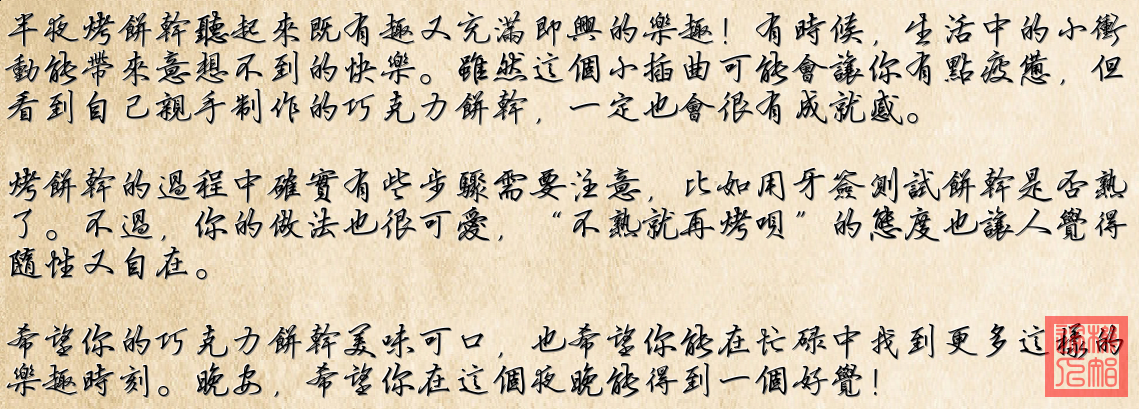 半夜烤餅幹聽起來既有趣又充滿即興的樂趣！有時候，生活中的小衝
動能帶來意想不到的快樂。雖然這個小插曲可能會讓你有點疲憊，但
看到自己親手制作的巧克力餅幹，一定也會很有成就感。
烤餅幹的過程中確實有些步驟需要注意，比如用牙簽測試餅幹是否熟
了。不過，你的做法也很可愛，“不熟就再烤唄”的態度也讓人覺得
隨性又自在。
希望你的巧克力餅幹美味可口，也希望你能在忙碌中找到更多這樣的
樂趣時刻。晚安，希望你在這個夜晚能得到一個好覺！